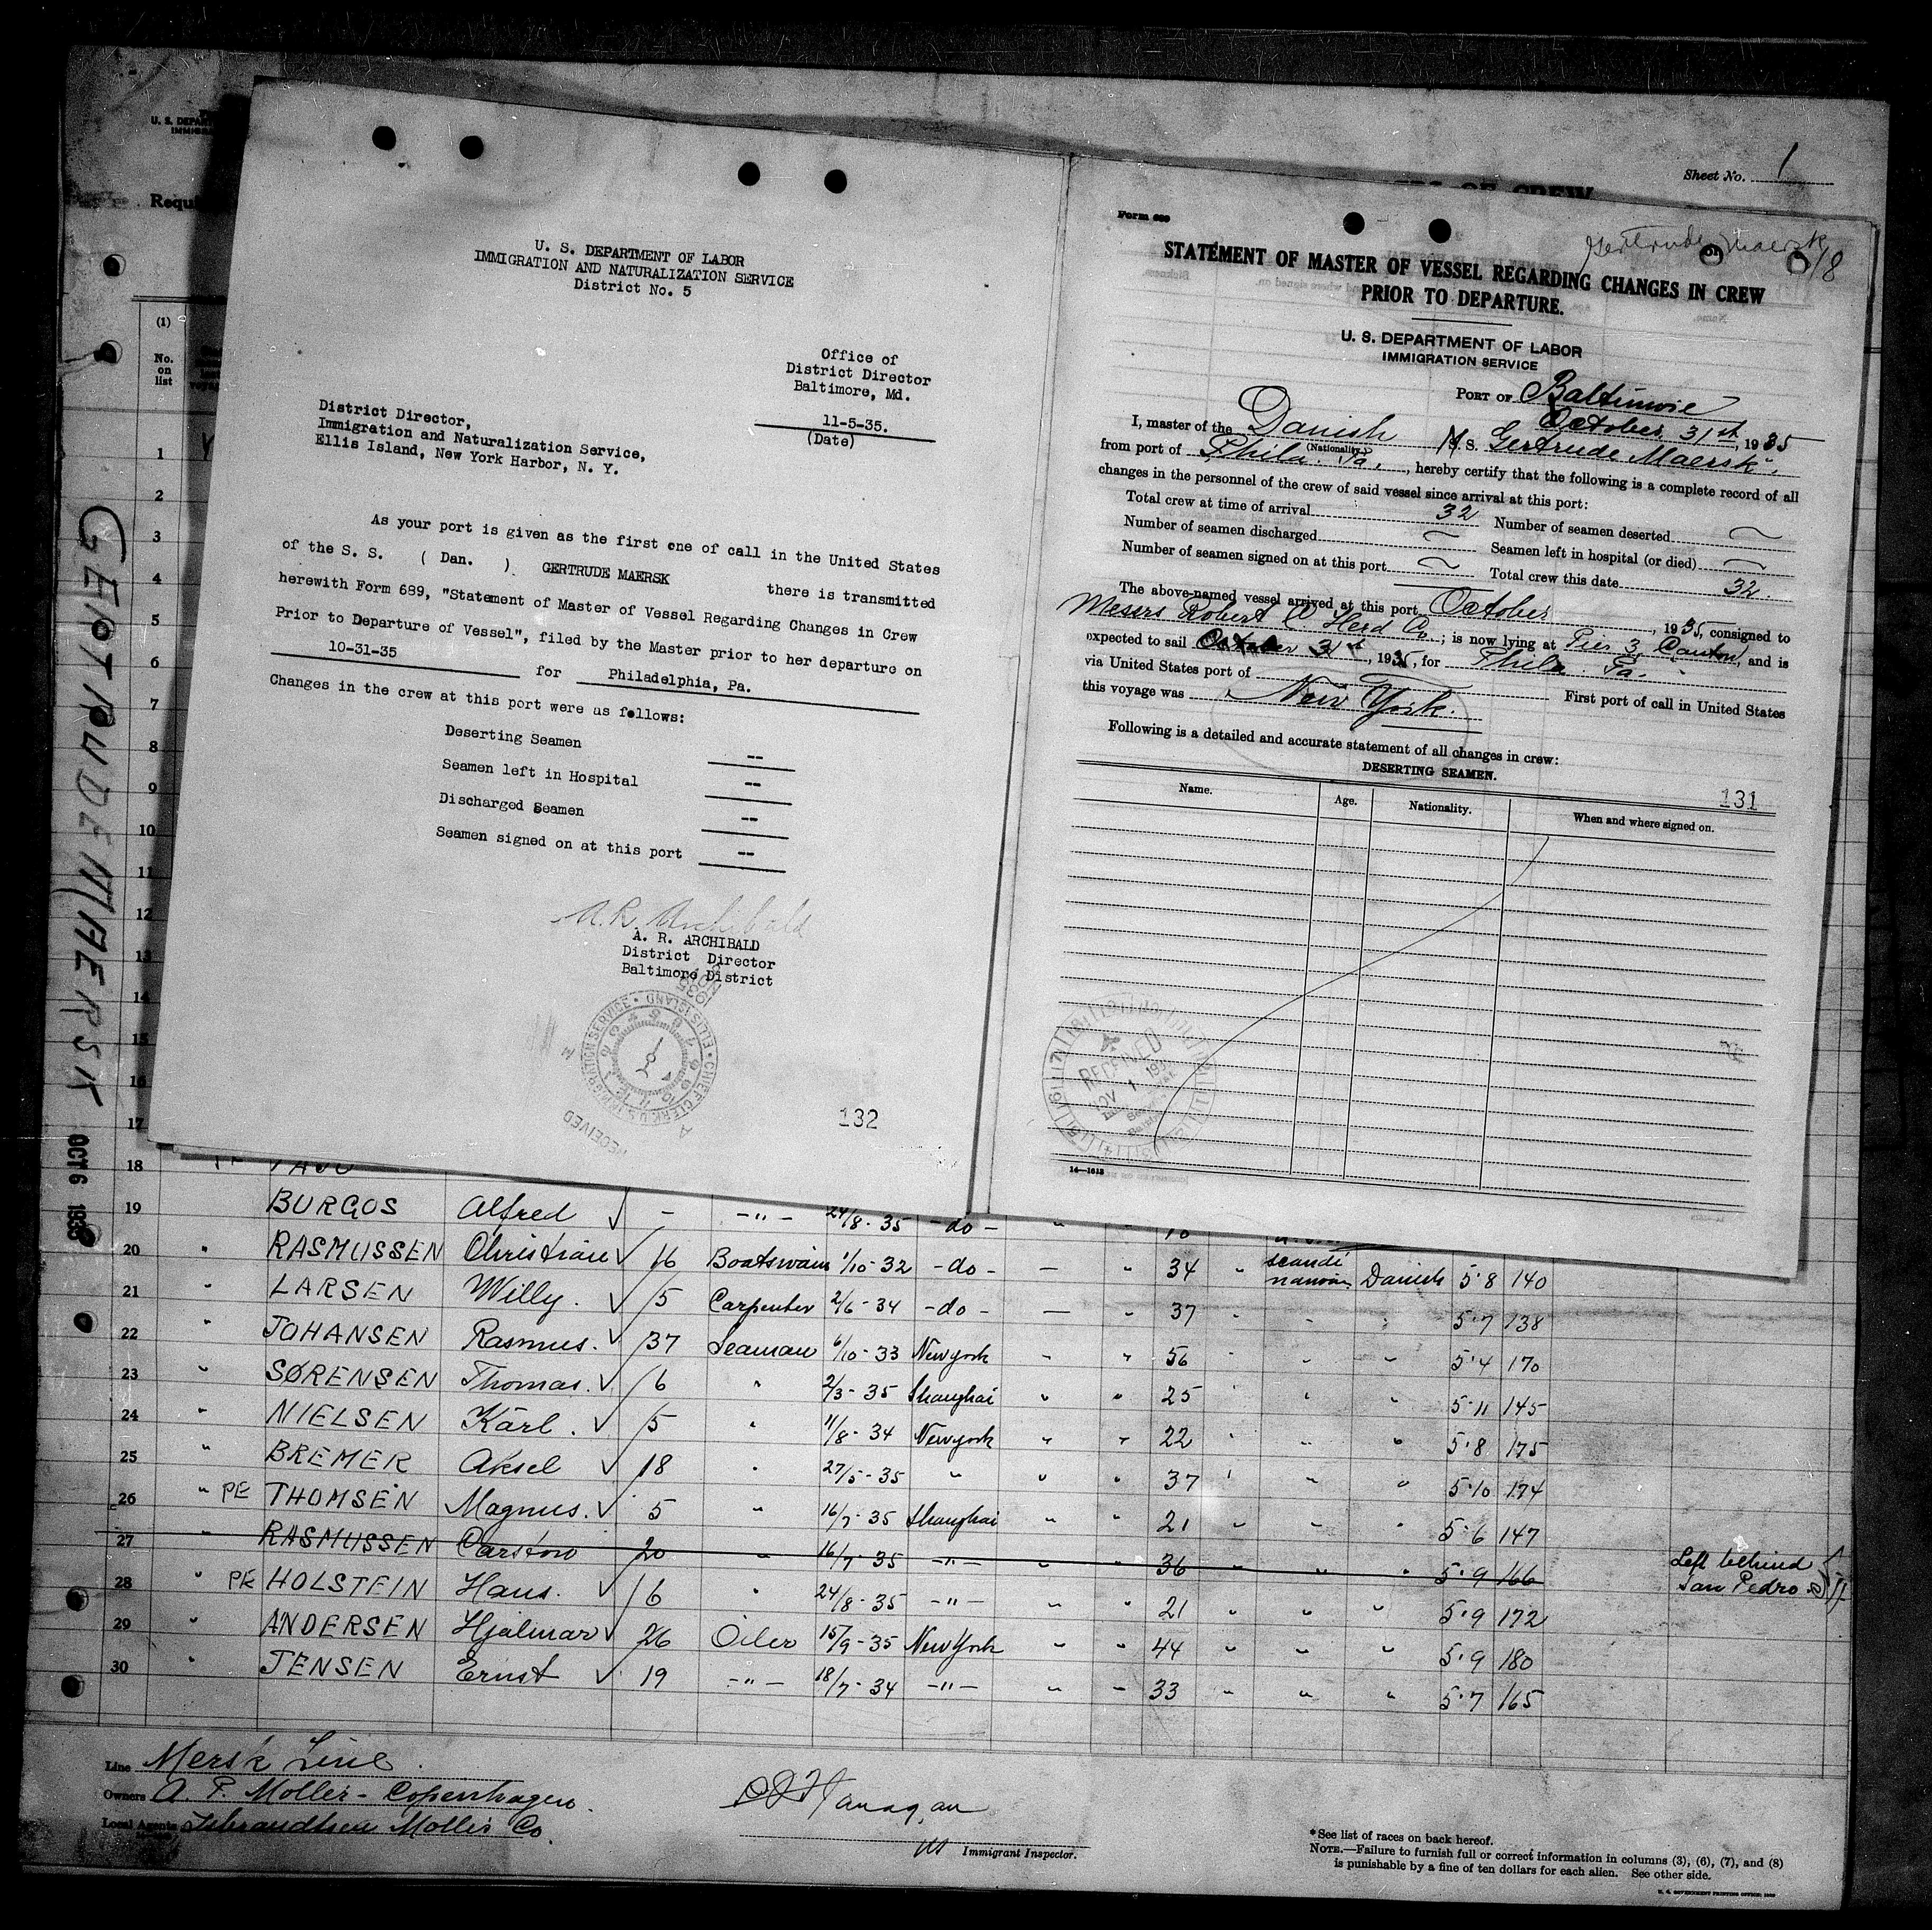 U. S. DEPA
IMMIGRA
Requ
Sheet No. 1
(1)
No.
on
list
GERTRUDE MAERSK OCT 6 1935
U. S. DEPARTMENT OF LABOR
IMMIGRATION AND NATURALIZATION SERVICE
District No. 5
Office of
District Director
Baltimore, Md.
11-5-35.
(Date)
District Director,
Immigration and Naturalization Service,
Ellis Island, New York Harbor, N. Y.
As your port is given as the first one of call in the United States
of the S. S. ( Dan. ) GERTRUDE MAERSK there is transmitted
herewith Form 689, "Statement of Master of Vessel Regarding Changes in Crew
Prior to Departure of Vessel", filed by the Master prior to her departure on
10-31-35 for Philadelphia, Pa.
Changes in the crew at this port were as follows:
Deserting Seamen --
Seamen left in Hospital --
Discharged Seamen --
Seamen signed on at this port --
A. R. Archibald
A. R. ARCHIBALD
District Director
Baltimore District
CHIEF CLERK U.S. IMMIGRATION SERVICE • ELLIS ISLAND
RECEIVED
132
Form 689
Gertrude Maersk
18
STATEMENT OF MASTER OF VESSEL REGARDING CHANGES IN CREW
PRIOR TO DEPARTURE.
U. S. DEPARTMENT OF LABOR
IMMIGRATION SERVICE
PORT OF Baltimore
October 31st, 1935
I, master of the Danish M. S. Gertrude Maersk,
(Nationality)
from port of Phila Pa., hereby certify that the following is a complete record of all
changes in the personnel of the crew of said vessel since arrival at this port:
Total crew at time of arrival 32 Number of seamen deserted ~
Number of seamen discharged ~ Seamen left in hospital (or died) ~
Number of seamen signed on at this port ~ Total crew this date 32.
The above-named vessel arrived at this port October , 1935, consigned to
Messrs Robert C Herd Co; is now lying at Pier 3, Canton, and is
expected to sail October 31st, 1935, for Phila Pa.
via United States port of First port of call in United States
this voyage was New York.
Following is a detailed and accurate statement of all changes in crew:
DESERTING SEAMEN.
131
Name. Age. Nationality. When and where signed on.
RECEIVED
NOV 1 193
14—1613
1
2
3
4
5
6
7
8
9
10
11
12
13
14
15
16
17
18
19 BURGOS Alfred ✓ - -"- 24/8-35 -do-
20 " RASMUSSEN Christian ✓ 16 Boatswain 1/10-32 -do- — " 34 " scandinavian Danish 5·8 140
21 " LARSEN Willy. ✓ 15 Carpenter 2/6-34 -do- — " 37 " " " 5·7 138
22 " JOHANSEN Rasmus. ✓ 37 Seaman 6/10-33 New york " " 56 " " " 5·4 170
23 " SØRENSEN Thomas. ✓ 6 " 2/3-35 Shanghai " " 25 " " " 5·11 145
24 " NIELSEN Karl. ✓ 5 " 11/8-34 New york " " 22 " " " 5·8 175
25 " BREMER Aksel ✓ 18 " 27/5-35 " " " 37 " " " 5·10 174
26 " PE THOMSEN Magnus. ✓ 5 " 16/7-35 Shanghai " " 21 " " " 5·6 147
27 " RASMUSSEN Carsten 20 " 16/7-35 -"- " " 36 " " " 5·9 166 Left behind San Pedro
28 " PE HOLSTEIN Hans. ✓ 6 " 24/8-35 -"- " " 21 " " " 5·9 172
29 " ANDERSEN Hjalmar ✓ 26 Oiler 15/9-35 New York " " 44 " " " 5·9 180
30 " JENSEN Ernst ✓ 19 -"- 18/7-34 -"- " " 33 " " " 5·7 165
Line Mersk Line.
Owners A. P. Moller - Copenhagen.
Local Agents Isbrandtsen Moller Co.
Immigrant Inspector.
*See list of races on back hereof.
NOTE.—Failure to furnish full or correct information in columns (3), (6), (7), and (8)
is punishable by a fine of ten dollars for each alien. See other side.
U. S. GOVERNMENT PRINTING OFFICE